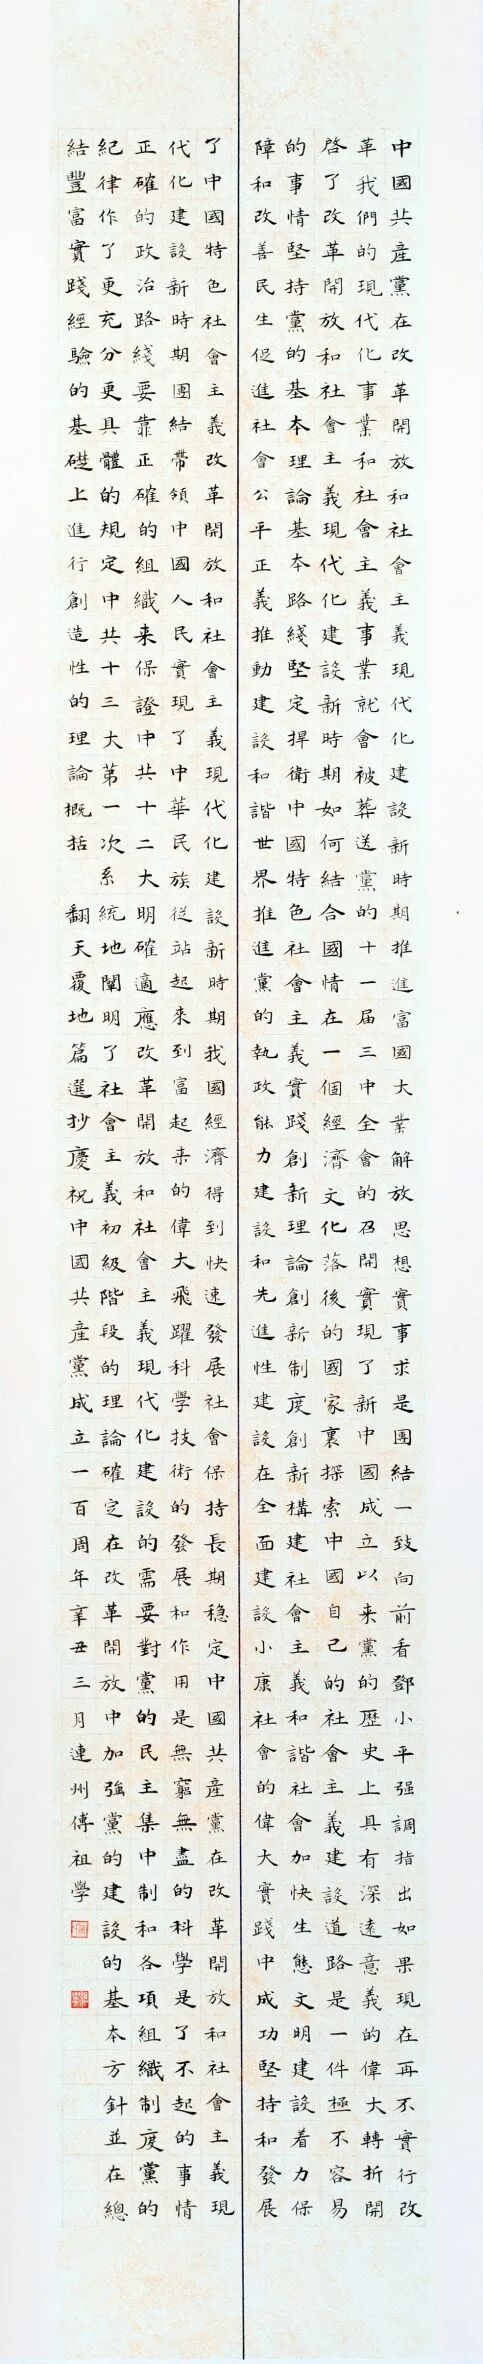 中國共產黨在改革開放和社會主義現代化建設新時期推進富國大業解放思想實事求是團結一致向前看鄧小平强調指出如果現在再不實行改
革我們的現代化事業和社會主義事業就會被葬送黨的十一届三中全會的召開實現了新中國成立以来黨的歷史上具有深遠意義的偉大轉折開
啓了改革開放和社會主義現代化建設新時期如何結合國情在一個經濟文化落後的國家裏探索中國自己的社會主義建設道路是一件極不容易
的事情堅持黨的基本理論基本路綫堅定捍衛中國特色社會主義實踐創新理論創新制度創新構建社會主義和諧社會加快生態文明建設着力保
障和改善民生促進社會公平正義推動建設和諧世界推進黨的執政能力建設和先進性建設在全面建設小康社會的偉大實踐中成功堅持和發展
了中國特色社會主義改革開放和社會主義現代化建設新時期我國經濟得到快速發展社會保持長期穩定中國共產黨在改革開放和社會主義現
代化建設新時期團結帶領中國人民實現了中華民族從站起來到富起来的偉大飛躍科學技術的發展和作用是無窮無盡的科學是了不起的事情
正確的政治路綫要靠正確的組織来保證中共十二大明確適應改革開放和社會主義現代化建設的需要對黨的民主集中制和各項組織制度黨的
紀律作了更充分更具體的規定中共十三大第一次系統地闡明了社會主義初級階段的理論確定在改革開放中加強黨的建設的基本方針並在總
結豐富實踐經驗的基礎上進行創造性的理論概括 翻天覆地篇選抄慶祝中國共產黨成立一百周年辛丑三月連州傅祖學